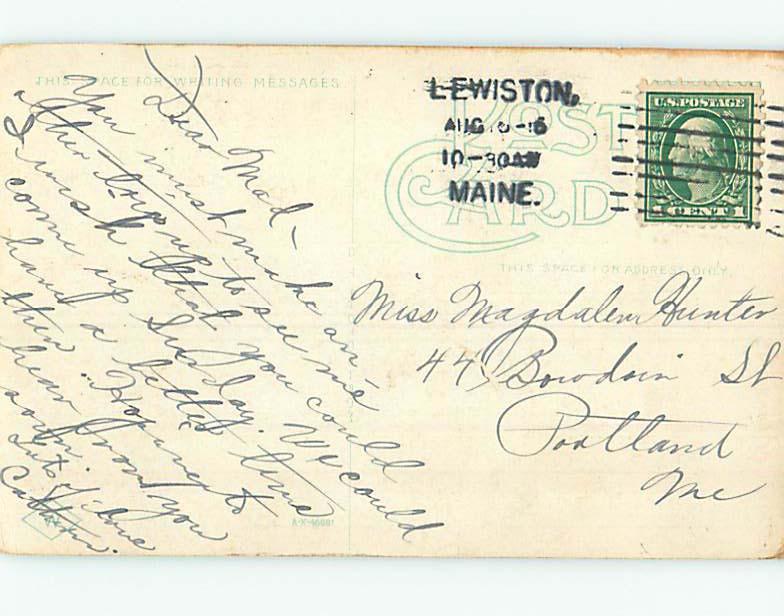 THIS SPACE FOR WRITING MESSAGES
Dear Mad-
You must make an-
other trip up to see me
I wish that you could
come up Sunday. We could
have a better time
then. Hoping to
hear from you
soon.
Lots of love
LEWISTON,
AUG -16
10-30AM
MAINE.
POST
CARD
U.S. POSTAGE
1 CENT 1
THIS SPACE FOR ADDRESS ONLY.
Miss Magdalen Hunter
44 Bowdoin St
Portland
Me
A-X-16681